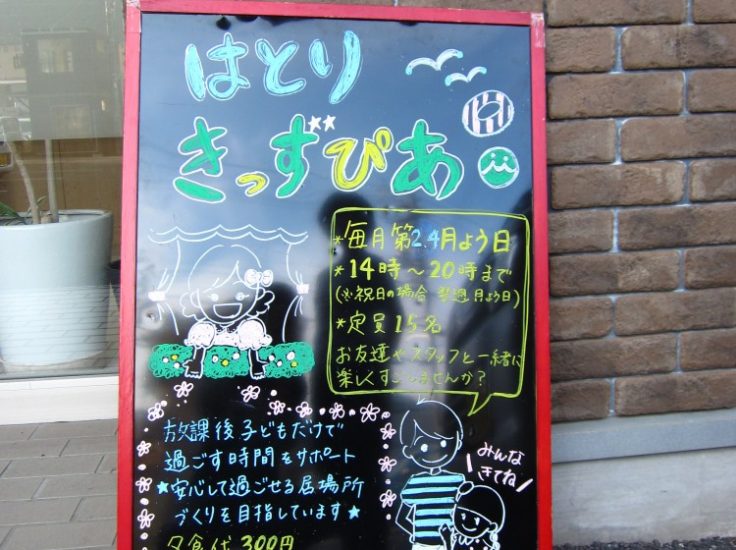 はとり
きっずぴあ
*毎月第2.4月よう日
*14時〜20時まで
(※祝日の場合 翌週月よう日)
*定員15名
お友達やスタッフと一緒に
楽しくすごしませんか?
放課後子どもだけで
過ごす時間をサポート
★安心して過ごせる居場所
づくりを目指しています★
夕食代300円
みんな
きてね